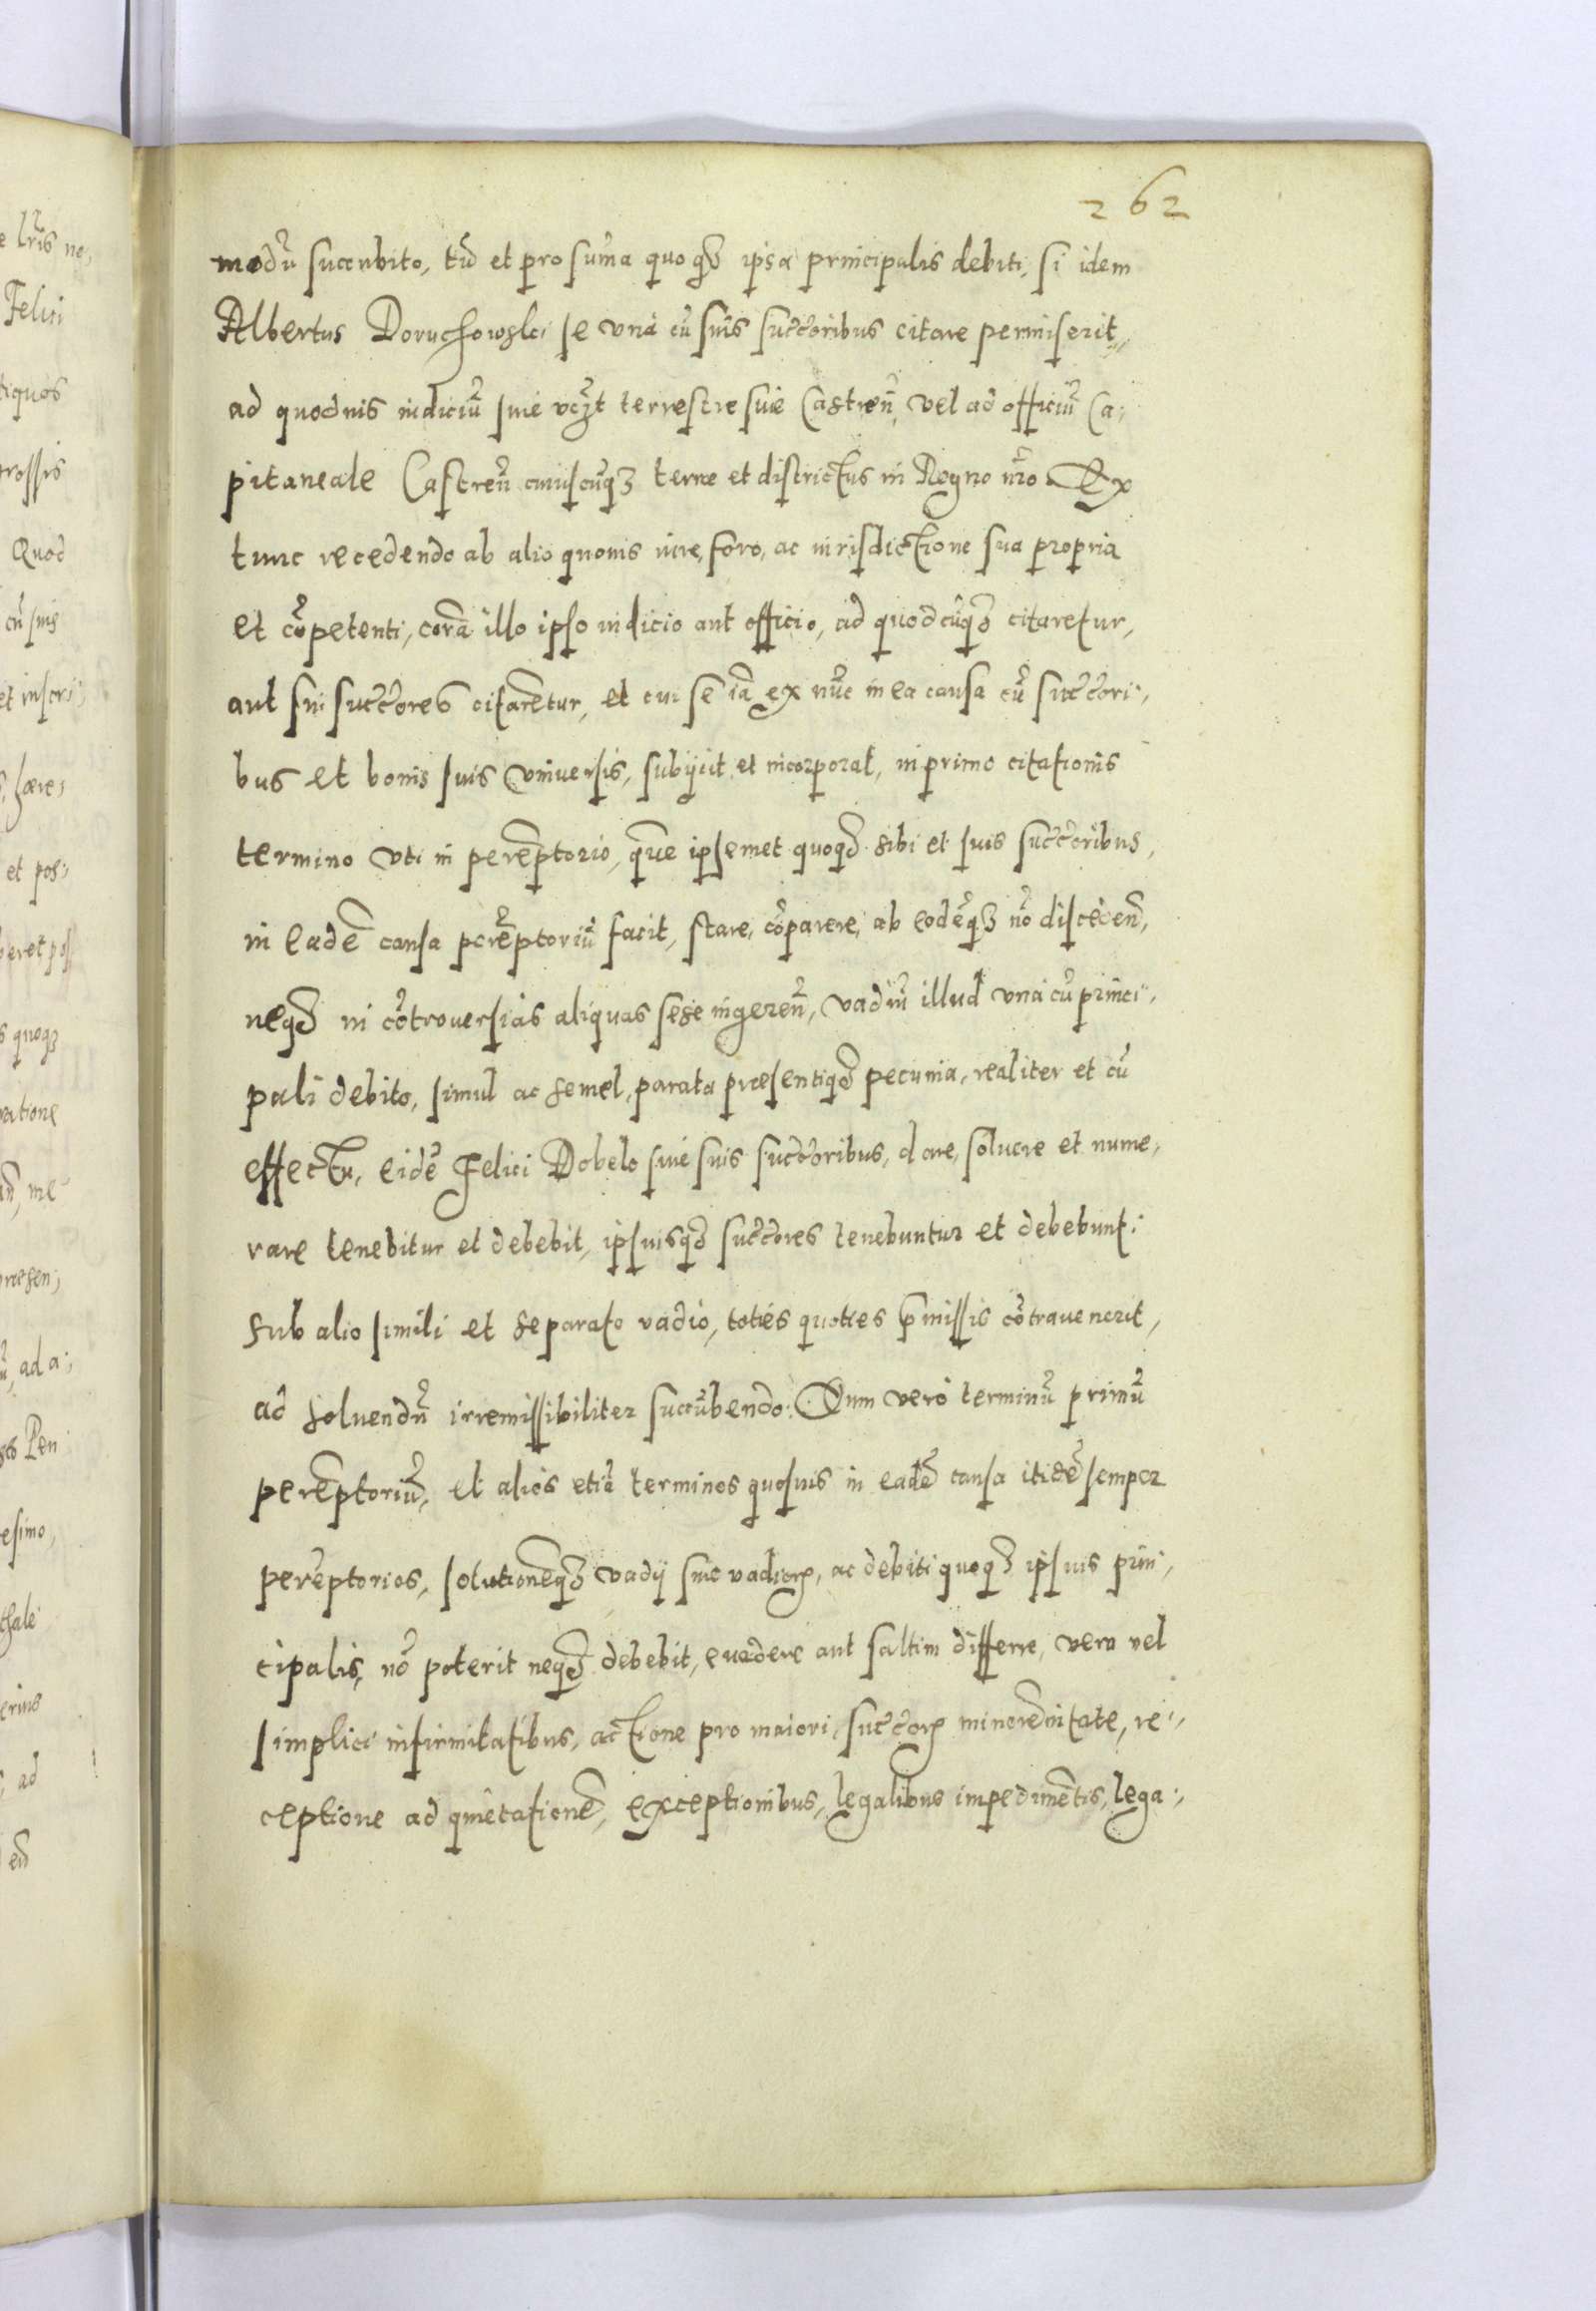 262
modũ succubito, tũ et pro sum̃a quoqȝ ipsa principalis debiti, si idem
Albertus Doruchowski se unà cũ suis succ̃oribus citare permiserit,
ad quoduis iudiciũ siue utpt̃ terrestre siue Castreñ, vel ad officiũ Ca:
pitaneale Castreñ cuiuscũqȝ terrae et districtus in Regno nr̃o Ex
tunc recedendo ab alio quouis iure, foro, ac iurisdictione sua propria
et cõpetenti, corã illo ipso iudicio aut officio, ad quodcũqȝ citaretur,
aut sui succ̃ores citarẽtur, et cui se iã ex nũc in ea causa cũ succ̃ori:
bus et bonis suis vniuersis, subijcit et incorporat, in primo citationis
termino vti in perẽptorio, quẽ ipsemet quoqȝ sibi et suis succ̃oribus,
in eadẽ causa perẽptoriũ facit, stare, cõparere, ab eodẽqȝ nõ discedeñ,
neqȝ in cõtrouersias aliquas sese ingereñ, vadiũ illud unà cũ princi:
pali debito, simul ac semel, parata praesentiqȝ pecunia, realiter et cũ
effectu, eidẽ Felici Dobelo siue suis succ̃oribus, dare, soluere et nume:
rare tenebitur et debebit, ipsiusqȝ succ̃ores tenebuntur et debebunt:
sub alio simili et separato vadio, toties quoties p̃missis cõtrauenerit,
ad soluendũ irremissibiliter succũbendo: Quem verò terminũ primũ
perẽptoriũ, et aliòs etiã terminos quosuis in eadẽ causa itidẽ semper
perẽptorios, solutionẽqȝ vadij siue vadiorꝝ, ac debiti quoqȝ ipsius prin:
cipalis, nõ poterit neqȝ debebit, euadere aut saltim differre, vera vel
simplici infirmitatibus, actione pro maiori, succ̃orꝝ minorẽnitate, re:
ceptione ad quietationẽ, exceptionibus, legalibus impedimẽtis, lega: